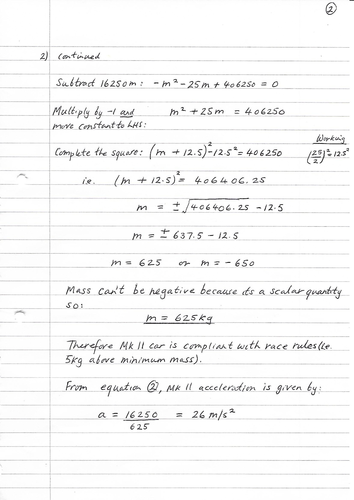 ②
2) continued
Subtract 16250m: -m² - 25m + 406250 = 0
Multiply by -1 and m² + 25m = 406250
move constant to LHS:
Working
Complete the square: (m + 12.5)² - 12.5² = 406250 (25/2)² = 12.5²
ie. (m + 12.5)² = 406406.25
m = ± √406406.25 - 12.5
m = ± 637.5 - 12.5
m = 625 or m = -650
Mass can't be negative because its a scalar quantity
so:
m = 625kg
Therefore Mk II car is compliant with race rules (ie.
5kg above minimum mass).
From equation ②, Mk II acceleration is given by:
a = 16250/625 = 26 m/s²